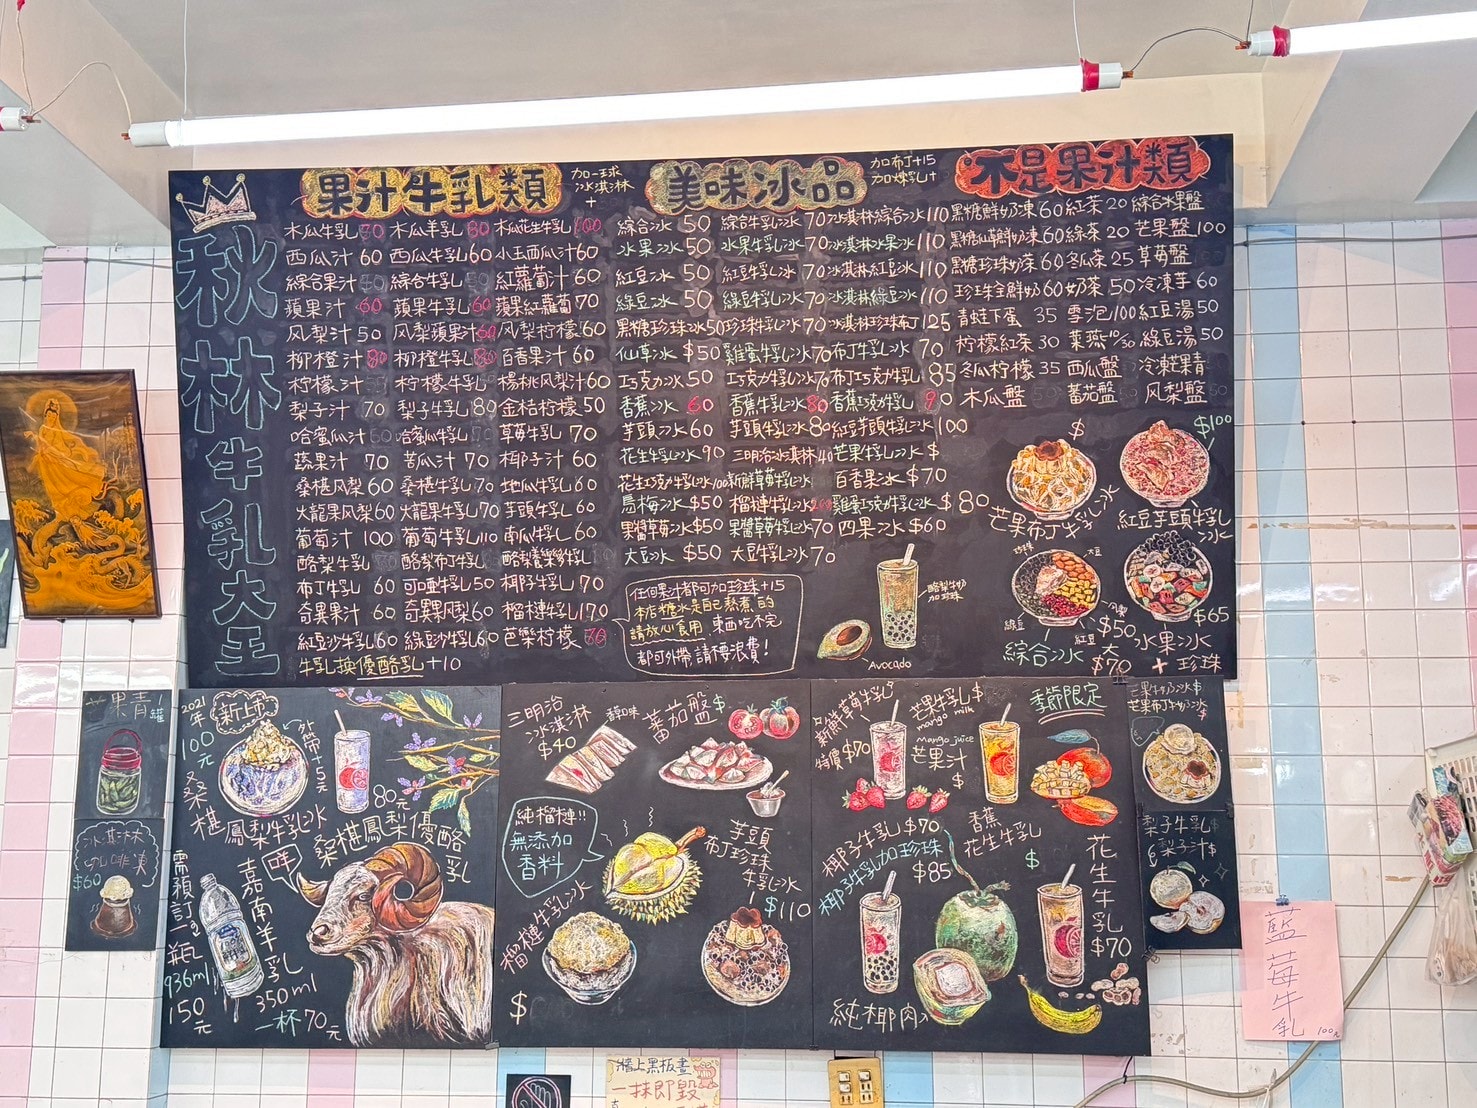 秋林牛乳大王
果汁牛乳類
加一球
冰淇淋
+
木瓜牛乳 70 木瓜羊乳 80 木瓜花生牛乳 100
西瓜汁 60 西瓜牛乳 60 小玉西瓜汁 60
綜合果汁 綜合牛乳 紅蘿蔔汁 60
蘋果汁 60 蘋果牛乳 60 蘋果紅蘿蔔 70
风梨汁 50 风梨蘋果汁 60 风梨柠檬 60
柳橙汁 80 柳橙牛乳 80 百香果汁 60
柠檬汁 柠檬牛乳 楊桃风梨汁 60
梨子汁 70 梨子牛乳 80 金桔柠檬 50
哈蜜瓜汁 哈蜜瓜牛乳 草莓牛乳 70
蔬果汁 70 苦瓜汁 70 椰子汁 60
桑椹风梨 60 桑椹牛乳 70 地瓜牛乳 60
火龍果风梨 60 火龍果牛乳 70 芋頭牛乳 60
葡萄汁 100 葡萄牛乳 110 南瓜牛乳 60
酪梨牛乳 酪梨布丁牛乳 酪梨養樂多牛乳
布丁牛乳 60 可口亞牛乳 50 椰子牛乳 70
奇異果汁 60 奇異风梨 60 榴槤牛乳 170
紅豆沙牛乳 60 綠豆沙牛乳 60 芭樂柠檬
牛乳換優酪乳+10
美味冰品
加布丁+15
加煉乳+
綜合冰 50 綜合牛乳冰 70 冰淇淋綜合冰 110
水果冰 50 水果牛乳冰 70 冰淇淋水果冰 110
紅豆冰 50 紅豆牛乳冰 70 冰淇淋紅豆冰 110
綠豆冰 50 綠豆牛乳冰 70 冰淇淋綠豆冰 110
黑糖珍珠冰 50 珍珠牛乳冰 70 冰淇淋珍珠布丁 125
仙草冰 $50 雞蛋牛乳冰 70 布丁牛乳冰 70
巧克力冰 50 巧克力牛乳冰 70 布丁巧克力牛乳 85
香蕉冰 60 香蕉牛乳冰 80 香蕉巧克力牛乳 90
芋頭冰 60 芋頭牛乳冰 80 紅豆芋頭牛乳 100
花生牛乳冰 90 三明治冰淇淋 40 芒果牛乳冰 $
花生巧克力牛乳冰 100 新鮮草莓牛乳冰 百香果冰 $70
烏梅冰 $50 榴槤牛乳冰 200 雞蛋巧克力牛乳冰 $80
果醬草莓冰 $50 果醬草莓牛乳冰 70 四果冰 $60
大豆冰 $50 大豆牛乳冰 70
任何果汁都可加珍珠+15
本店糖水是自己熬煮的
請放心食用,東西吃不完
都可外帶請不要浪費!
酪梨牛奶
加珍珠
Avocado
不是果汁類
黑糖鮮奶凍 60 紅茶 20 綜合水果盤
黑糖仙草鮮奶凍 60 綠茶 20 芒果盤 100
黑糖珍珠奶茶 60 冬瓜茶 25 草莓盤
珍珠全鮮奶 60 奶茶 50 冷凍芋 60
青蛙下蛋 35 雪泡 100 紅豆湯 50
柠檬紅茶 30 菜燕 10/30 綠豆湯 50
冬瓜柠檬 35 西瓜盤 冷凍芒果青
木瓜盤 蕃茄盤 风梨盤
$
芒果布丁牛乳冰
$100
紅豆芋頭牛乳冰
珍珠
大豆
綠豆
紅豆
风梨
綜合冰
$50
大$70
$65
水果冰
+珍珠
芒果青
罐
冰淇淋
咖啡凍
$60
2021年
新上市
100元
桑椹鳳梨牛乳冰
外帶+5元
80元
桑椹鳳梨優酪乳
咩
嘉南羊乳
需預訂
一瓶
936ml
150元
350ml
一杯70元
三明治
冰淇淋
$40
蕃茄盤 $
純榴槤!!
無添加
香料
榴槤牛乳冰
$
芋頭
布丁珍珠
牛乳冰
$110
新鮮草莓牛乳
特價 $70
芒果牛乳 $
mango milk
mango juice
芒果汁
$
季節限定
椰子牛乳 $70
椰子牛乳加珍珠
$85
純椰肉
香蕉
花生牛乳
$
花生牛乳
$70
芒果牛奶冰 $
芒果布丁牛奶冰 $
梨子牛乳 $
梨子汁 $
藍莓牛乳
100元
牆上黑板畫
一抹即毀